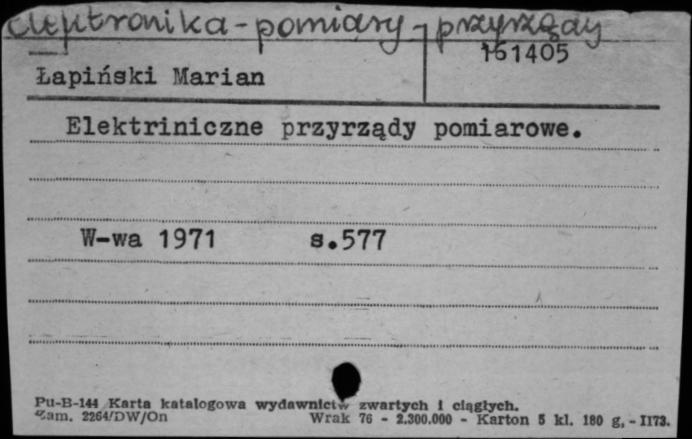 elektronika - pomiary - przyrządy
161405
Łapiński Marian
Elektriniczne przyrządy pomiarowe.
W-wa 1971 s.577
Pu-B-144 Karta katalogowa wydawnictw zwartych i ciągłych.
Zam. 2264/DW/On Wrak 76 - 2.300.000 - Karton 5 kl. 180 g, - II73.